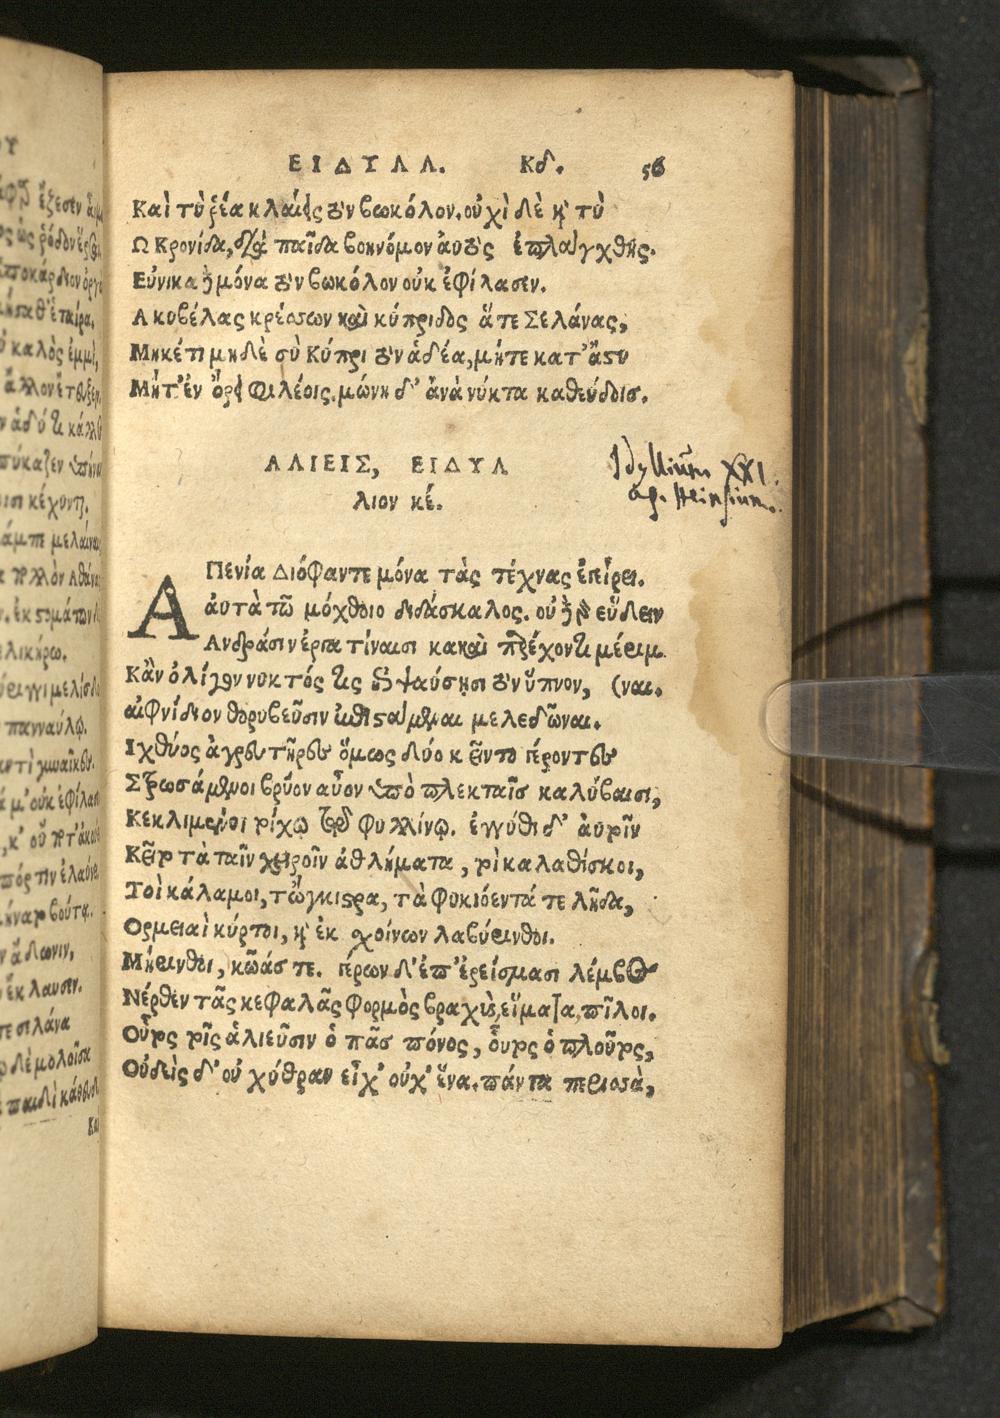 ΕΙΔΥΛΛ. Κδ. 56
Καὶ τὺ ῥέα κλαίεις τὸν βωκόλον. οὐχὶ δὲ κὴ τὺ
Ω Κρονίδα, διὰ παῖδα βοηνόμον αὐτὸς ἐπλάγχθης.
Εὐνίκα δὲ μόνα τὸν βωκόλον οὐκ ἐφίλασεν.
Α κυβέλας κρέσσων καὶ κύπριδος ἅ τε Σελάνας,
Μηκέτι μηδὲ σὺ Κύπρι τὸν ἁδέα, μήτε κατ' ἄστυ
Μήτ' ἐν ὄρει φιλέοις. μώνη δ' ἀνὰ νύκτα καθεύδοις.
ΑΛΙΕΙΣ, ΕΙΔΥΛ
λιον κέ.
Idyllium XXI.
ap. Heinsium.
Α Πενία Διόφαντε μόνα τὰς τέχνας ἐγείρει.
αὐτὰ τῶ μόχθοιο διδάσκαλος. οὐ γὰρ εὕδειν
Ανδράσιν ἐργατίναισι κακαὶ παρέχοντι μέριμ
Κἂν ὀλίγον νυκτός τις ἐπιψαύσησι τὸν ὕπνον, (ναι.
αἰφνίδιον θορυβεῦσιν ἐφιστάμεναι μελεδῶναι.
Ιχθύος ἀγρευτῆρες ὅμως δύο κεῖντο γέροντες
Στρωσάμενοι βρύον αὖον ὑπὸ πλεκταῖσ καλύβαισι,
Κεκλιμένοι τοίχῳ τῷ φυλλίνῳ. ἐγγύθι δ' αὐτοῖν
Κεῖτο τὰ ταῖν χειροῖν ἀθλήματα, τοὶ καλαθίσκοι,
Τοὶ κάλαμοι, τὤγκιστρα, τὰ φυκιόεντά τε λῆδα,
Ορμειαὶ κύρτοι, κὴ ἐκ σχοίνων λαβύρινθοι.
Μήρινθοι, κῶάς τε. γέρων δ' ἐπ' ἐρείσμασι λέμβος
Νέρθεν τᾶς κεφαλᾶς φορμὸς βραχὺς, εἵματα, πῖλοι.
Οὗτος τοῖς ἁλιεῦσιν ὁ πᾶσ πόνος, οὗτος ὁ πλοῦτος,
Οὐδεὶς δ' οὐ χύθραν εἶχ' οὐχ' ἕνα. πάντα περισσὰ,